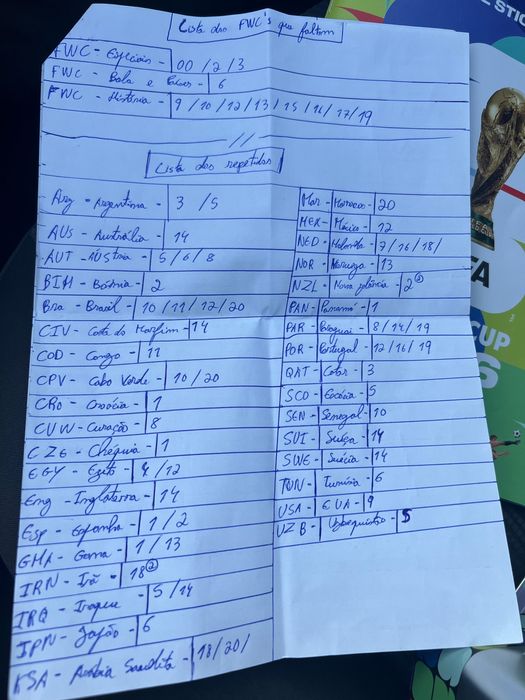 Lista dos FWC's que faltam
FWC - Especiais - 00 / 2 / 3
FWC - Bola e Países - 6
FWC - História - 9 / 10 / 12 / 13 / 15 / 16 / 17 / 19
//
Lista dos repetidos
Arg - Argentina - 3 / 5
AUS - Austrália - 14
AUT - Áustria - 5 / 6 / 8
BIH - Bósnia - 2
Bra - Brasil - 10 / 11 / 12 / 20
CIV - Costa do Marfim - 14
COD - Congo - 11
CPV - Cabo Verde - 10 / 20
CRO - Croácia - 1
CUW - Curaçao - 8
CZE - Chéquia - 1
EGY - Egito - 4 / 12
Eng - Inglaterra - 14
Esp - Espanha - 1 / 2
GHA - Gana - 1 / 13
IRN - Irã - 18 (2)
IRQ - Iraque - 5 / 14
JPN - Japão - 6
KSA - Arábia Saudita - 18 / 20 /
Mar - Marrocos - 20
MEX - México - 12
NED - Holanda - 7 / 16 / 18 /
NOR - Noruega - 13
NZL - Nova Zelância - 2
PAN - Panamá - 1
PAR - Paraguai - 8 / 14 / 19
POR - Portugal - 12 / 16 / 19
QAT - Catar - 3
SCO - Escócia - 5
SEN - Senegal - 10
SUI - Suíça - 14
SWE - Suécia - 14
TUN - Tunísia - 6
USA - EUA - 9
UZB - Uzbequistão - 5
STIC
FA
CUP
6